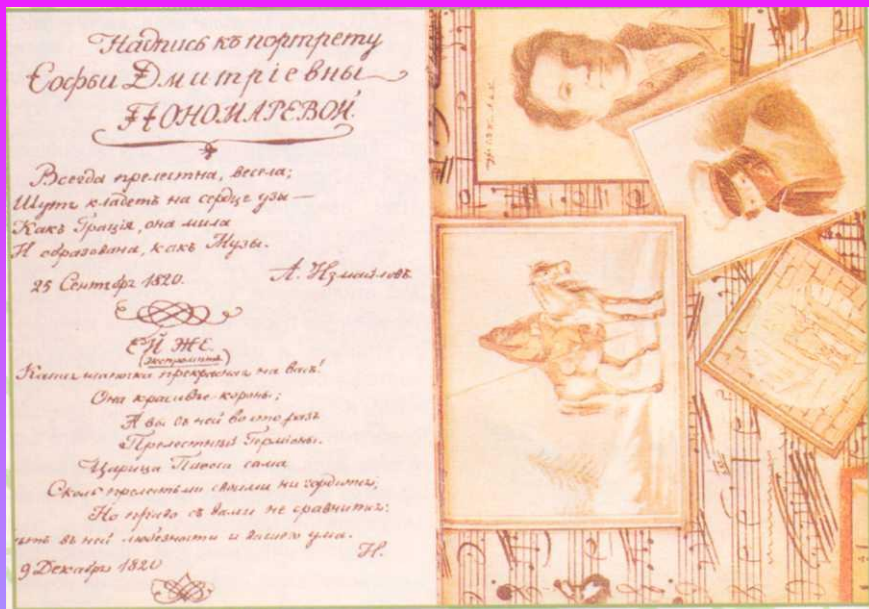 Надпись къ портрету
Софьи Дмитріевны
ПОНОМАРЕВОЙ.
Всегда прелестна, весела;
Шутя кладетъ на сердце узы —
Какъ Грація, она мила
И образована, какъ Музы.
25 Сентбр 1820. А. Измайловъ
ЕЙ ЖЕ.
(экспромптъ)
прекрасная на васъ!
Она красивѣе короны;
А вы въ ней во сто разъ
Прелестнѣй Герміоны.
Царица Пафоса сама
Сколь прелестьми своими ни гордится,
Но право съ вами не сравнится:
въ ней любезности и вашего ума.
И.
9 Декабрь 1820